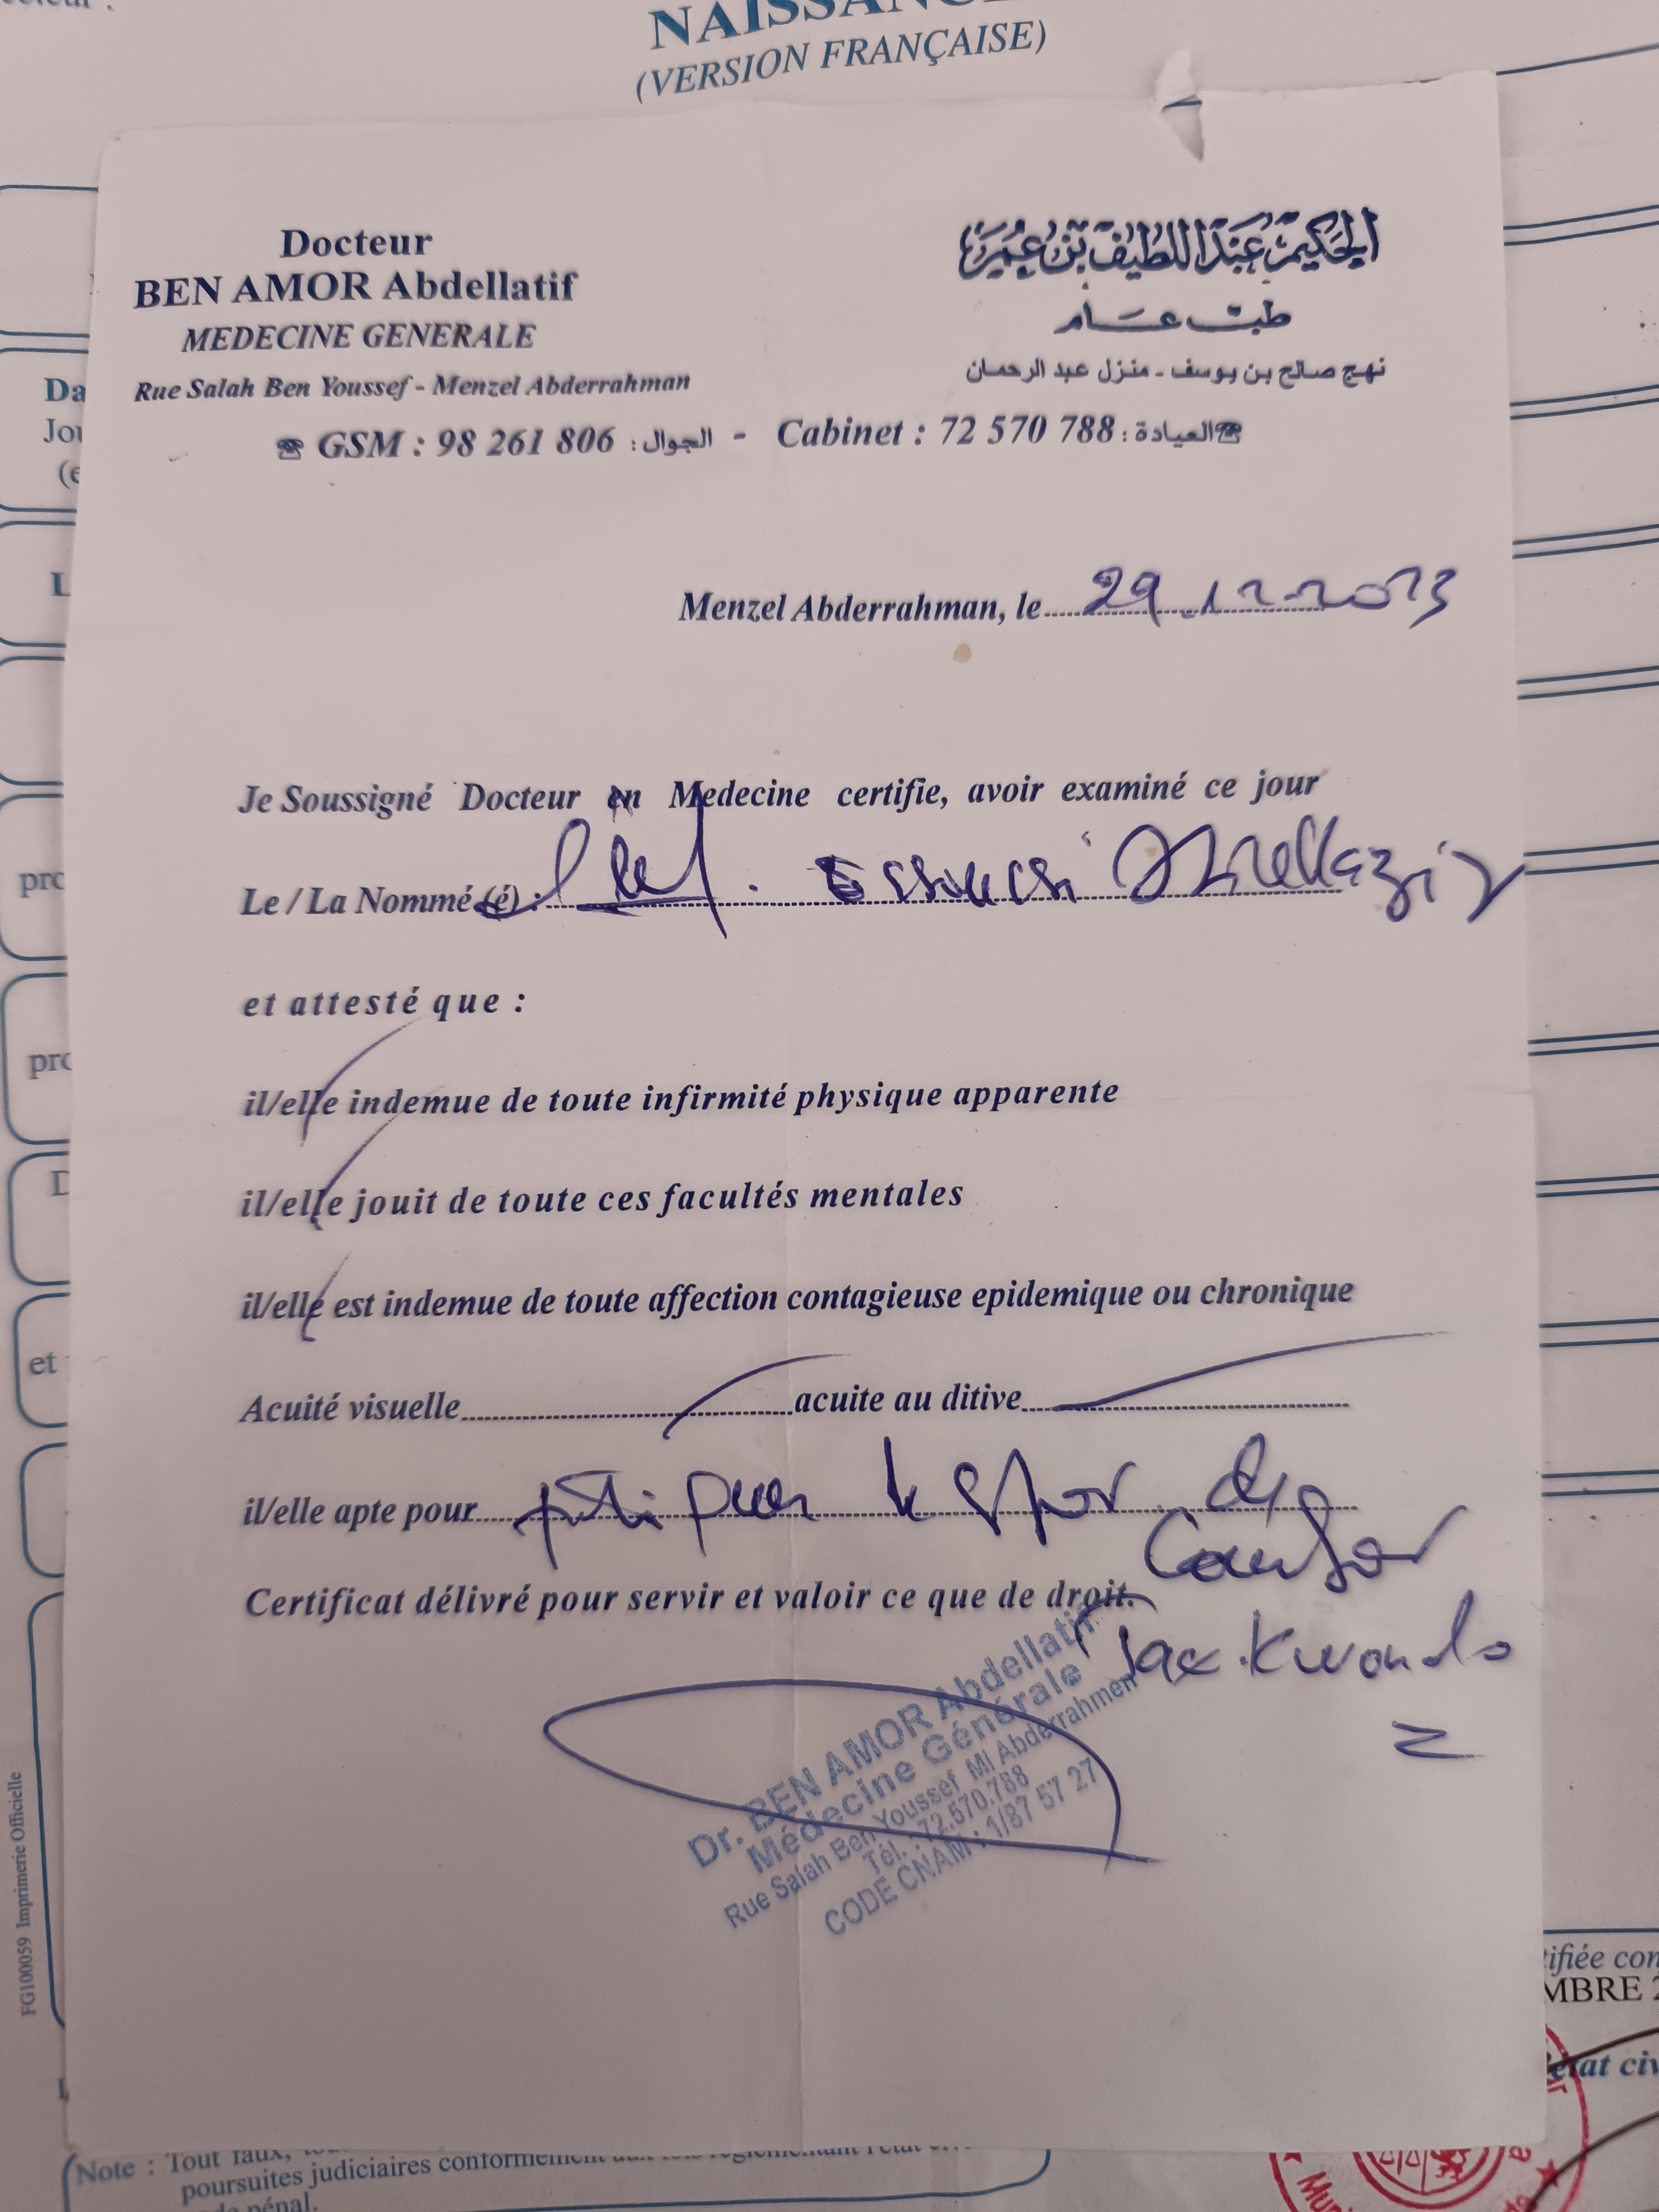 NAISSANCE
(VERSION FRANÇAISE)
Docteur
BEN AMOR Abdellatif
MEDECINE GENERALE
Rue Salah Ben Youssef - Menzel Abderrahman
الحكيم عبد اللطيف بن عمر
طب عام
نهج صالح بن يوسف - منزل عبد الرحمان
GSM : 98 261 806 : الجوال - Cabinet : 72 570 788 : العيادة
Menzel Abderrahman, le 29.12.2023
Je Soussigné Docteur en Medecine certifie, avoir examiné ce jour
Le / La Nommé (é) : Essoussi Abdellaziz
et attesté que :
il/elle indemue de toute infirmité physique apparente
il/elle jouit de toute ces facultés mentales
il/elle est indemue de toute affection contagieuse epidemique ou chronique
Acuité visuelle acuite au ditive
il/elle apte pour pour le spor de
Combat
Certificat délivré pour servir et valoir ce que de droit.
Taekwondo
Dr. BEN AMOR Abdellatif
Médecine Générale
Rue Salah Ben Youssef Ml Abderrahmen
Tél. : 72.570.788
CODE CNAM : 1/87 57 27
FG100059 Imprimerie Officielle
Da
(e
pro
pro
et
tifiée con
MBRE 2
état civ
Note : Tout faux,
poursuites judiciaires conformément aux lois réglementant l'état
pénal.